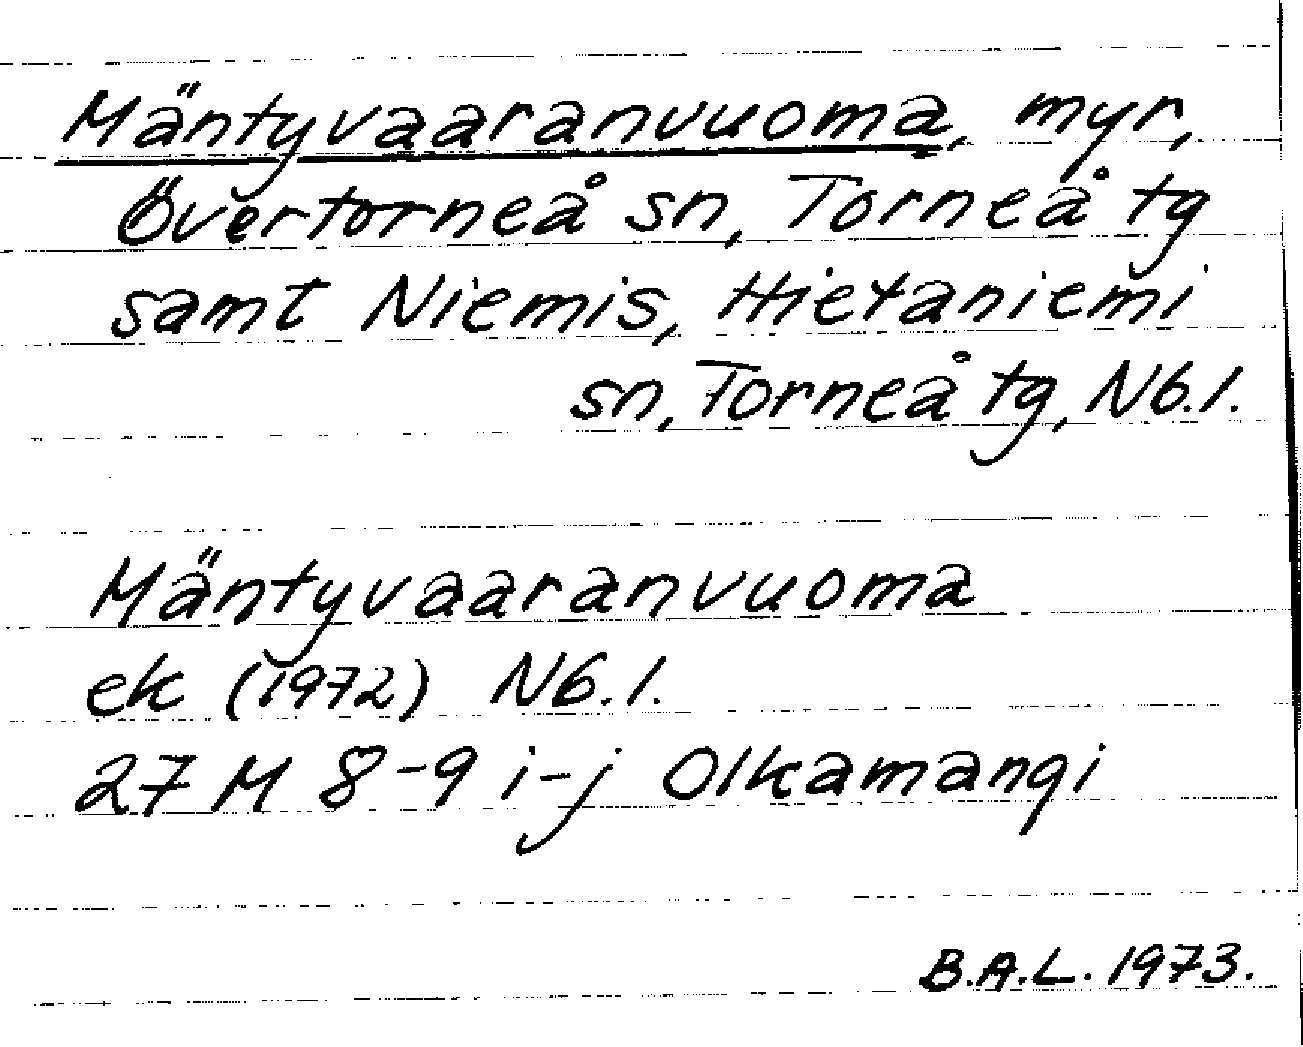 Mäntyvaaranvuoma, myr,
Övertorneå sn, Torneå tg
samt Niemis, Hietaniemi
sn, Torneå tg, Nb.l.
Mäntyvaaranvuoma
ek (1972) Nb.l.
27 M 8-9 i-j Olkamangi
B.A.L. 1973.